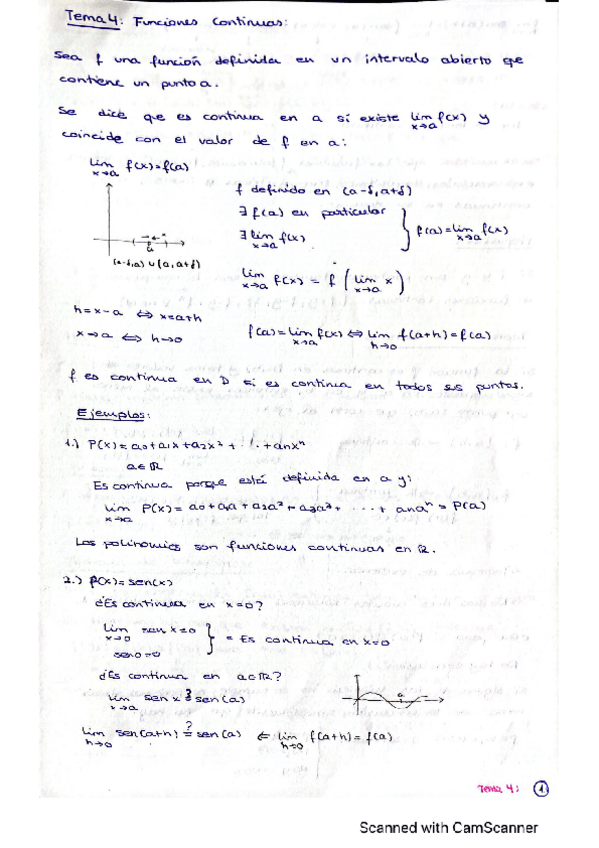 Tema 4: Funciones Continuas:
Sea f una función definida en un intervalo abierto que
contiene un punto a.
Se dice que es continua en a si existe lim f(x) y
x→a
coincide con el valor de f en a:
lim f(x)=f(a)
x→a
f definido en (a-δ, a+δ)
∃ f(a) en particular
∃ lim f(x)
x→a
f(a)=lim f(x)
x→a
a
(a-δ,a) ∪ (a, a+δ)
lim f(x) = f (lim x)
x→a x→a
h=x-a ⇔ x=a+h
x→a ⇔ h→0
f(a)=lim f(x) ⇔ lim f(a+h)=f(a)
x→a h→0
f es continua en D si es continua en todos sus puntos.
Ejemplos:
1.) P(x)=a0+a1x+a2x²+ ··+anxⁿ
a∈ℝ
Es continua porque está definida en a y:
lim P(x)=a0+a1a+a2a²+a3a³+ ···+ anaⁿ = P(a)
x→a
Los polinomios son funciones continuas en ℝ.
2.) f(x)=sen(x)
¿Es continua en x=0?
lim sen x=0
x→0
sen0=0
= Es continua en x=0
¿Es continua en a∈ℝ?
lim sen x ?= sen(a)
x→a
a
lim sen(a+h) ?= sen(a) ⇐ lim f(a+h)=f(a)
h→0 h→0
Tema 4: 1
Scanned with CamScanner